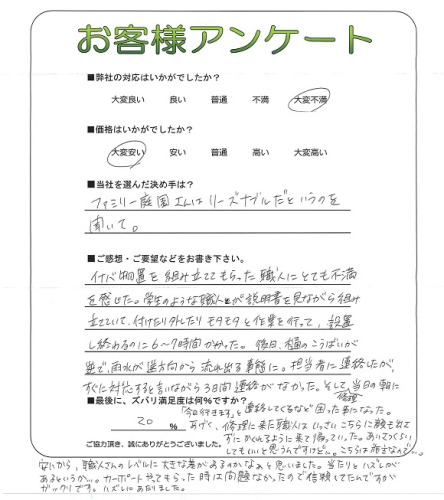 お客様アンケート
■弊社の対応はいかがでしたか？
大変良い 良い 普通 不満 大変不満
■価格はいかがでしたか？
大変安い 安い 普通 高い 大変高い
■当社を選んだ決め手は？
ファミリー庭園さんはリーズナブルだというのを
聞いて。
■ご感想・ご要望などをお書き下さい。
イナバ物置を組み立ててもらった職人にとても不満
を感じた。学生のような職人が説明書を見ながら組み
立てていて、付けたり外したりモタモタと作業を行って、設置
し終わるのに6〜7時間かかった。後日、樋のこうばいが
逆で、雨水が逆方向から流れ出る事態に。担当者に連絡したが、
すぐに対応すると言いながら3日間連絡がなかった。そして、当日の朝に
■最後に、ズバリ満足度は何％ですか？
「今日行きます」と連絡してくるなど困った事になった。
20 ％
修理に来た職人はいっさいこちらに顔を出さ
ずにかくれるように来て帰っていった。あいさつくらい
ご協力頂き、誠にありがとうございました。
してもいいと思うんですけど…。こちらは客なので…。
安いから、職人さんのレベルに大きな差があるのかなぁと思いました。当たりとハズレが
あるというか…。カーポートやってもらった時は問題なかったので信頼してたんですが
ガックリです。ハズレにあたりました。